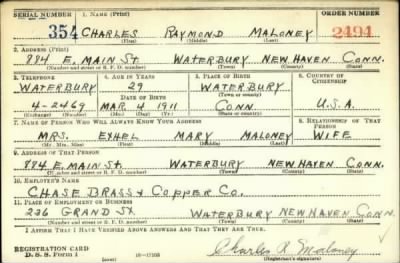 SERIAL NUMBER 1. NAME (Print) ORDER NUMBER
354 CHARLES RAYMOND MALONEY 2494
(First) (Middle) (Last)
2. ADDRESS (Print)
884 E. MAIN ST. WATERBURY NEW HAVEN CONN.
(Number and street or R. F. D. number) (Town) (County) (State)
3. TELEPHONE 4. AGE IN YEARS 5. PLACE OF BIRTH 6. COUNTRY OF CITIZENSHIP
WATERBURY 29 WATERBURY
DATE OF BIRTH (Town or county)
4-2469 MAR 4 1911 CONN. U.S.A.
(Exchange) (Number) (Mo.) (Day) (Yr.) (State or country)
7. NAME OF PERSON WHO WILL ALWAYS KNOW YOUR ADDRESS 8. RELATIONSHIP OF THAT PERSON
MRS. ETHEL MARY MALONEY WIFE
(Mr., Mrs., Miss) (First) (Middle) (Last)
9. ADDRESS OF THAT PERSON
884 E. MAIN ST. WATERBURY NEW HAVEN CONN.
(Number and street or R. F. D. number) (Town) (County) (State)
10. EMPLOYER'S NAME
CHASE BRASS & COPPER CO.
11. PLACE OF EMPLOYMENT OR BUSINESS
236 GRAND ST. WATERBURY NEW HAVEN CONN.
(Number and street or R. F. D. number) (Town) (County) (State)
I AFFIRM THAT I HAVE VERIFIED ABOVE ANSWERS AND THAT THEY ARE TRUE.
REGISTRATION CARD
D. S. S. Form 1 Charles R. Maloney
(Registrant's signature)